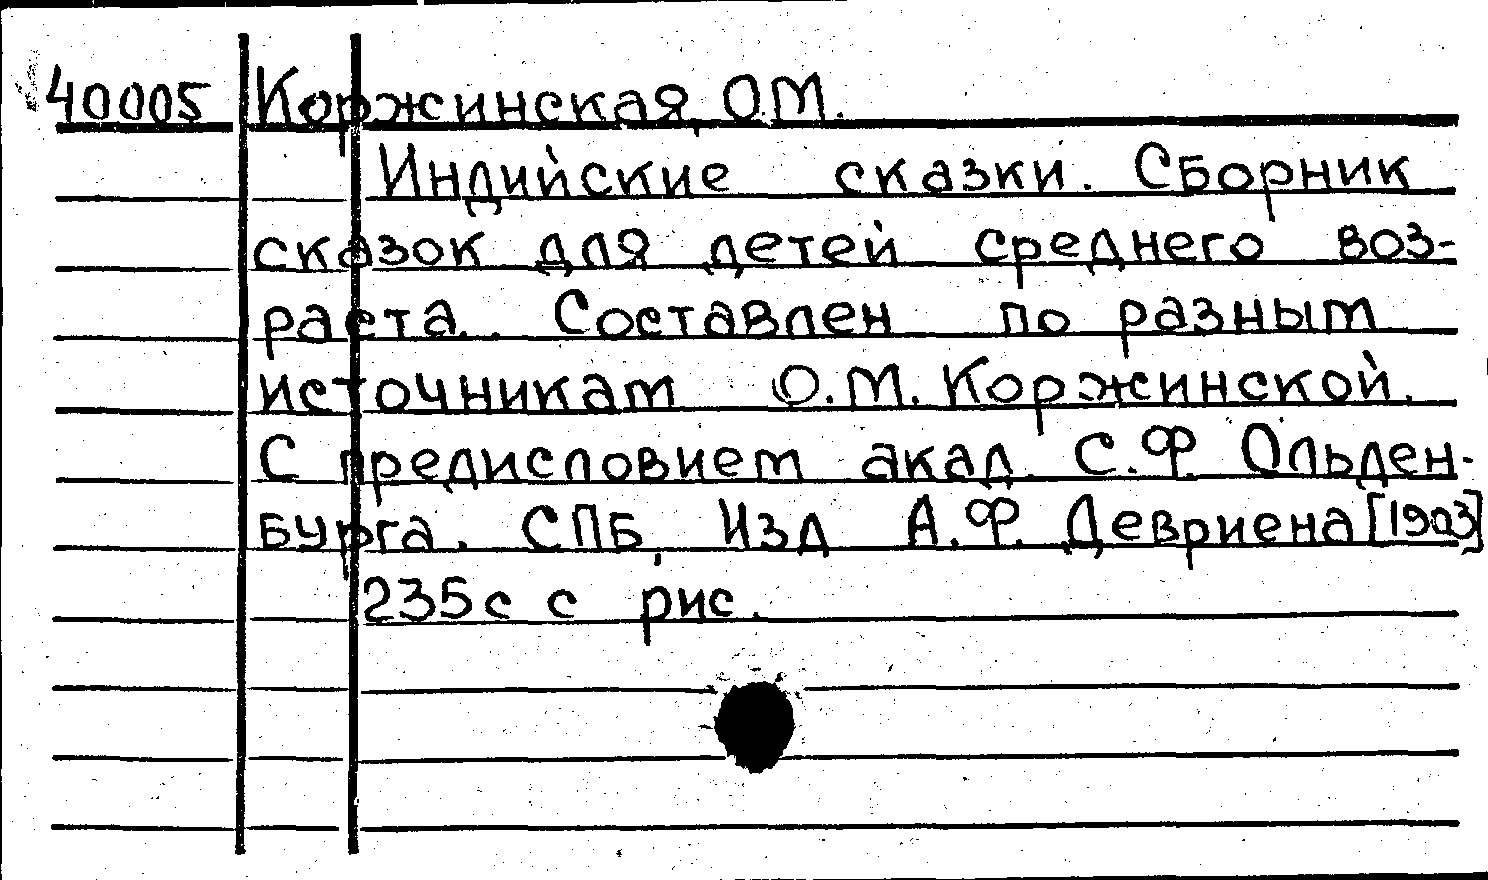 40005 Коржинская, О.М.
Индийские сказки. Сборник
сказок для детей среднего воз-
раста. Составлен по разным
источникам О.М. Коржинской.
С предисловием акад. С.Ф. Ольден-
бурга. СПБ, Изд А.Ф. Девриена [1903]
235с с рис.